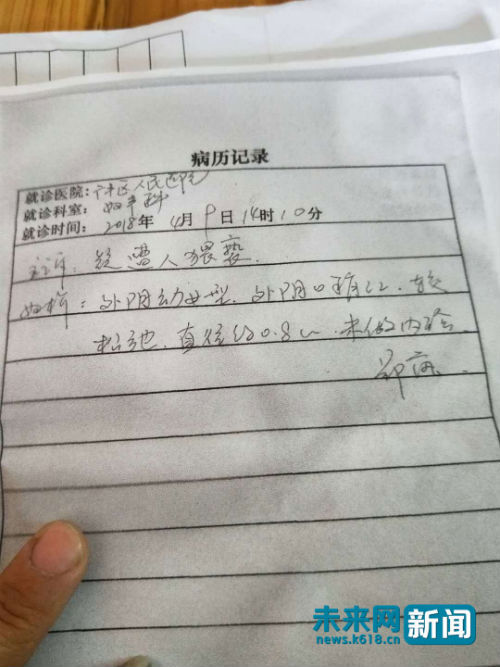 病历记录
就诊医院：区人民医院
就诊科室：妇产科
就诊时间：2018年4月9日14时10分
主诉：疑遭人猥亵．
妇检：外阴幼女型．外阴口稍红．较
松弛．直径约0.8cm．未做内检
未来网新闻
news.k618.cn